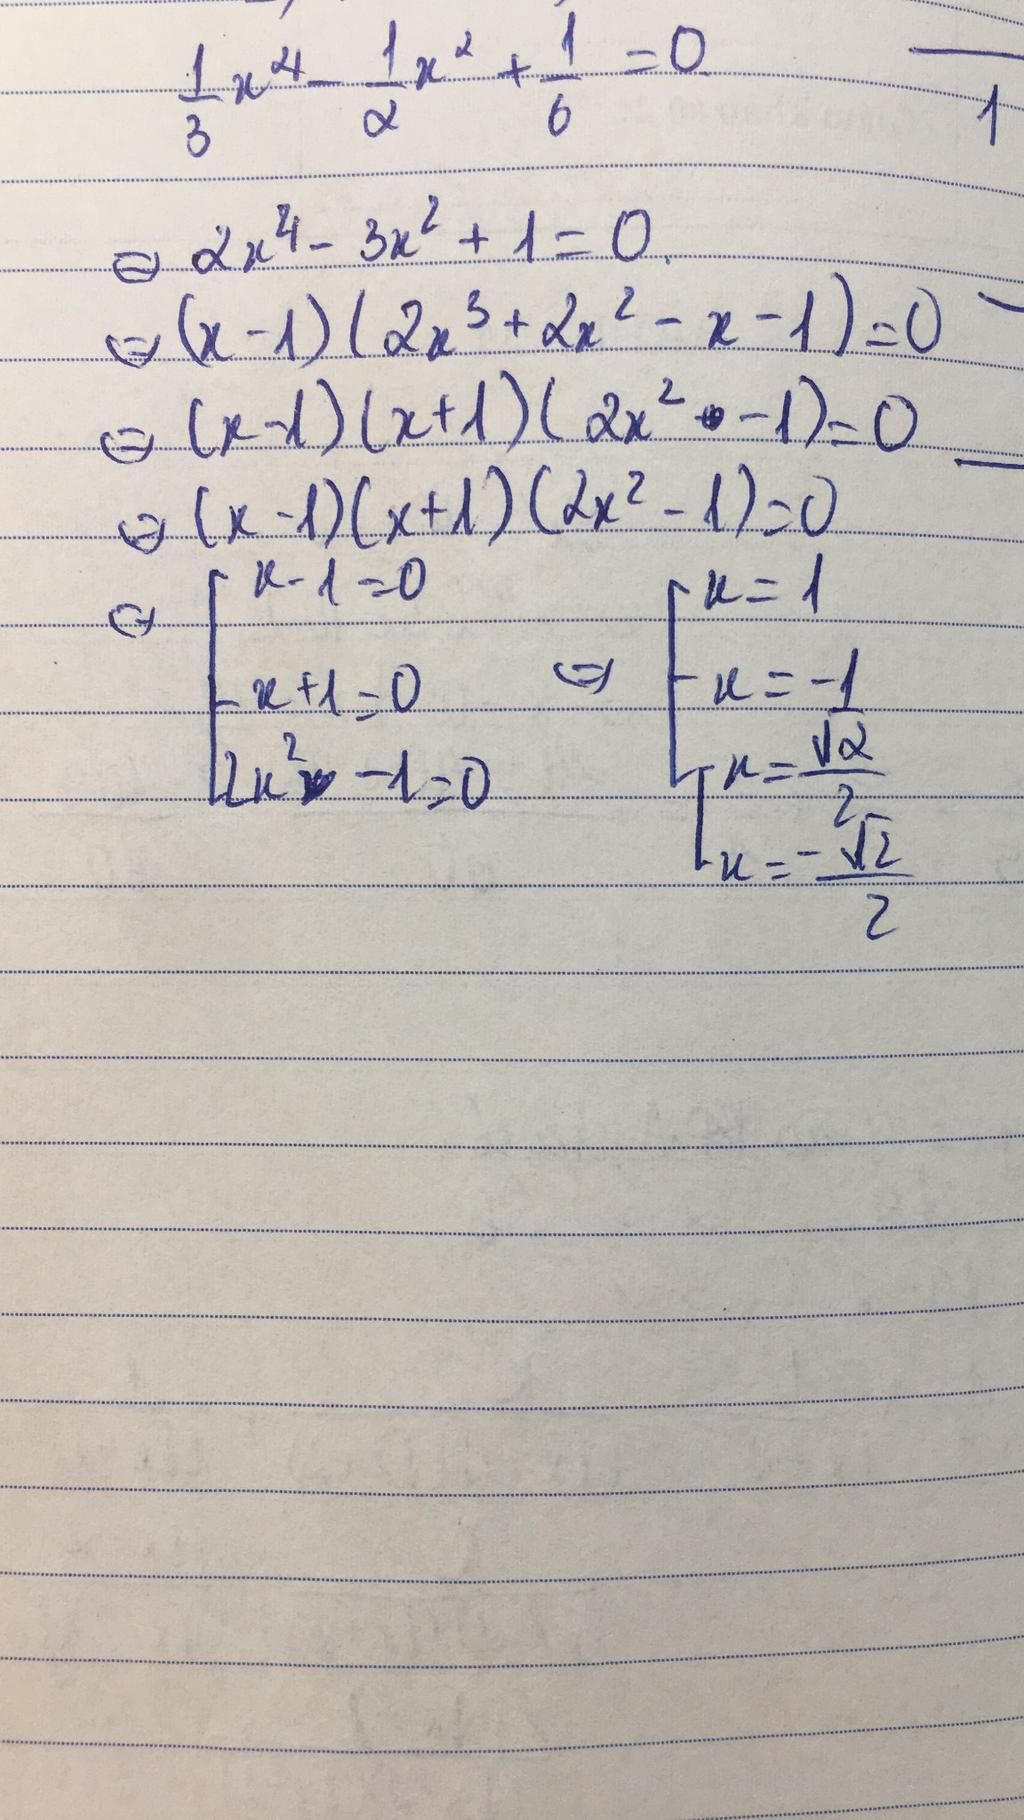 1/3 x⁴ - 1/2 x² + 1/6 = 0
⇔ 2x⁴ - 3x² + 1 = 0.
⇔ (x-1)(2x³ + 2x² - x - 1) = 0
⇔ (x-1)(x+1)(2x² - 1) = 0
⇔ (x-1)(x+1)(2x² - 1) = 0
⇔ [ x-1 = 0 ⇔ [ x = 1
x+1 = 0 x = -1
2x² - 1 = 0 [ x = √2/2
x = -√2/2
1